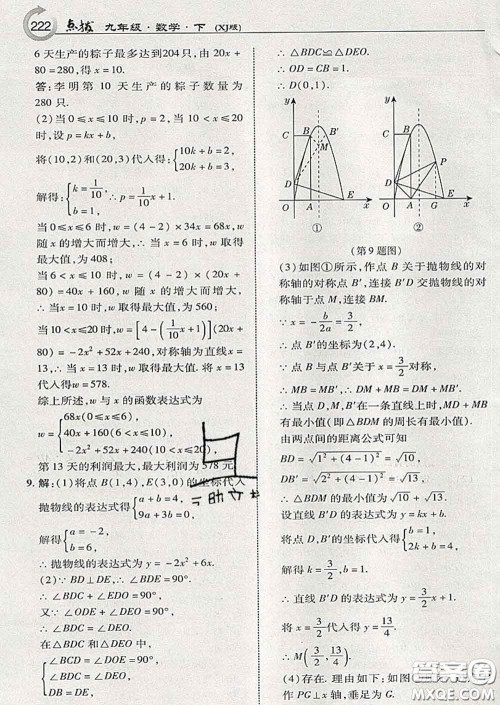 222 点拨 九年级·数学·下 (XJ版)
6 天生产的粽子最多达到204只,由20x+
80=280,得 x=10.
答:李明第 10 天生产的粽子数量为
280 只.
(2)当 0≤x≤10 时,p=2,当 10<x≤20
时,设 p=kx+b,
将(10,2)和(20,3)代入得:{10k+b=2, 20k+3=b,
解得:{k=1/10, b=1, ∴ p=1/10 x+1.
当 0≤x≤6 时,w=(4-2)×34x=68x,w
随 x 的增大而增大,∴ 当 x=6 时,w 取得
最大值,为 408;
当 6<x≤10 时,w=(4-2)×(20x+
80)=40x+160,w 随 x 的增大而增大,
∴ 当 x=10 时,w 取得最大值,为 560;
当 10<x≤20 时,w=[4-(1/10 x+1)](20x+
80)=-2x²+52x+240,对称轴为直线x=
13,∴ 当 x=13 时,w 取得最大值. 将 x=13
代入得w=578.
综上所述,w 与 x 的函数表达式为
w={68x(0≤x≤6), 40x+160(6<x≤10), -2x²+52x+240(10<x≤20).
第 13 天的利润最大,最大利润为 578 元.
9. 解:(1)将点 B(1,4),E(3,0)的坐标代入
抛物线的表达式得{a+b=4, 9a+3b=0,
解得{a=-2, b=6,
∴ 抛物线的表达式为 y=-2x²+6x.
(2)∵ BD⊥DE,∴ ∠BDE=90°.
∴ ∠BDC+∠EDO=90°.
又∵ ∠ODE+∠DEO=90°,
∴ ∠BDC=∠DEO.
在△BDC 和△DEO 中,
{∠BCD=∠DOE=90°,
∠BDC=∠DEO,
DB=DE,
∴ △BDC≌△DEO.
∴ OD=CB=1.
∴ D(0,1).
y C B B′ M D O E x ①
y C B P D O A G E x ②
(第 9 题图)
(3)如图①所示,作点 B 关于抛物线的对
称轴的对称点 B′,连接 B′D 交抛物线的对
称轴于点 M,连接 BM.
∵ x=-b/2a=3/2,
∴ 点 B′的坐标为(2,4).
∵ 点 B 与点 B′关于 x=3/2 对称,
∴ MB=MB′. ∴ DM+MB=DM+MB′.
∴ 当点 D,M,B′在一条直线上时,MD+MB
有最小值(即△BDM 的周长有最小值).
由两点间的距离公式可知
BD=√1²+(4-1)²=√10,
DB′=√2²+(4-1)²=√13,
∴ △BDM 的最小值为 √10+√13.
设直线 B′D 的表达式为 y=kx+b.
将点 D,B′的坐标代入得{b=1, 2k+b=4,
解得:k=3/2,b=1.
∴ 直线 B′D 的表达式为 y=3/2 x+1.
将 x=3/2 代入得 y=13/4.
∴ M(3/2,13/4).
(4)存在. 理由如下:如图
作 PG⊥x 轴,垂足为 G.
答案圈
MXQE.COM